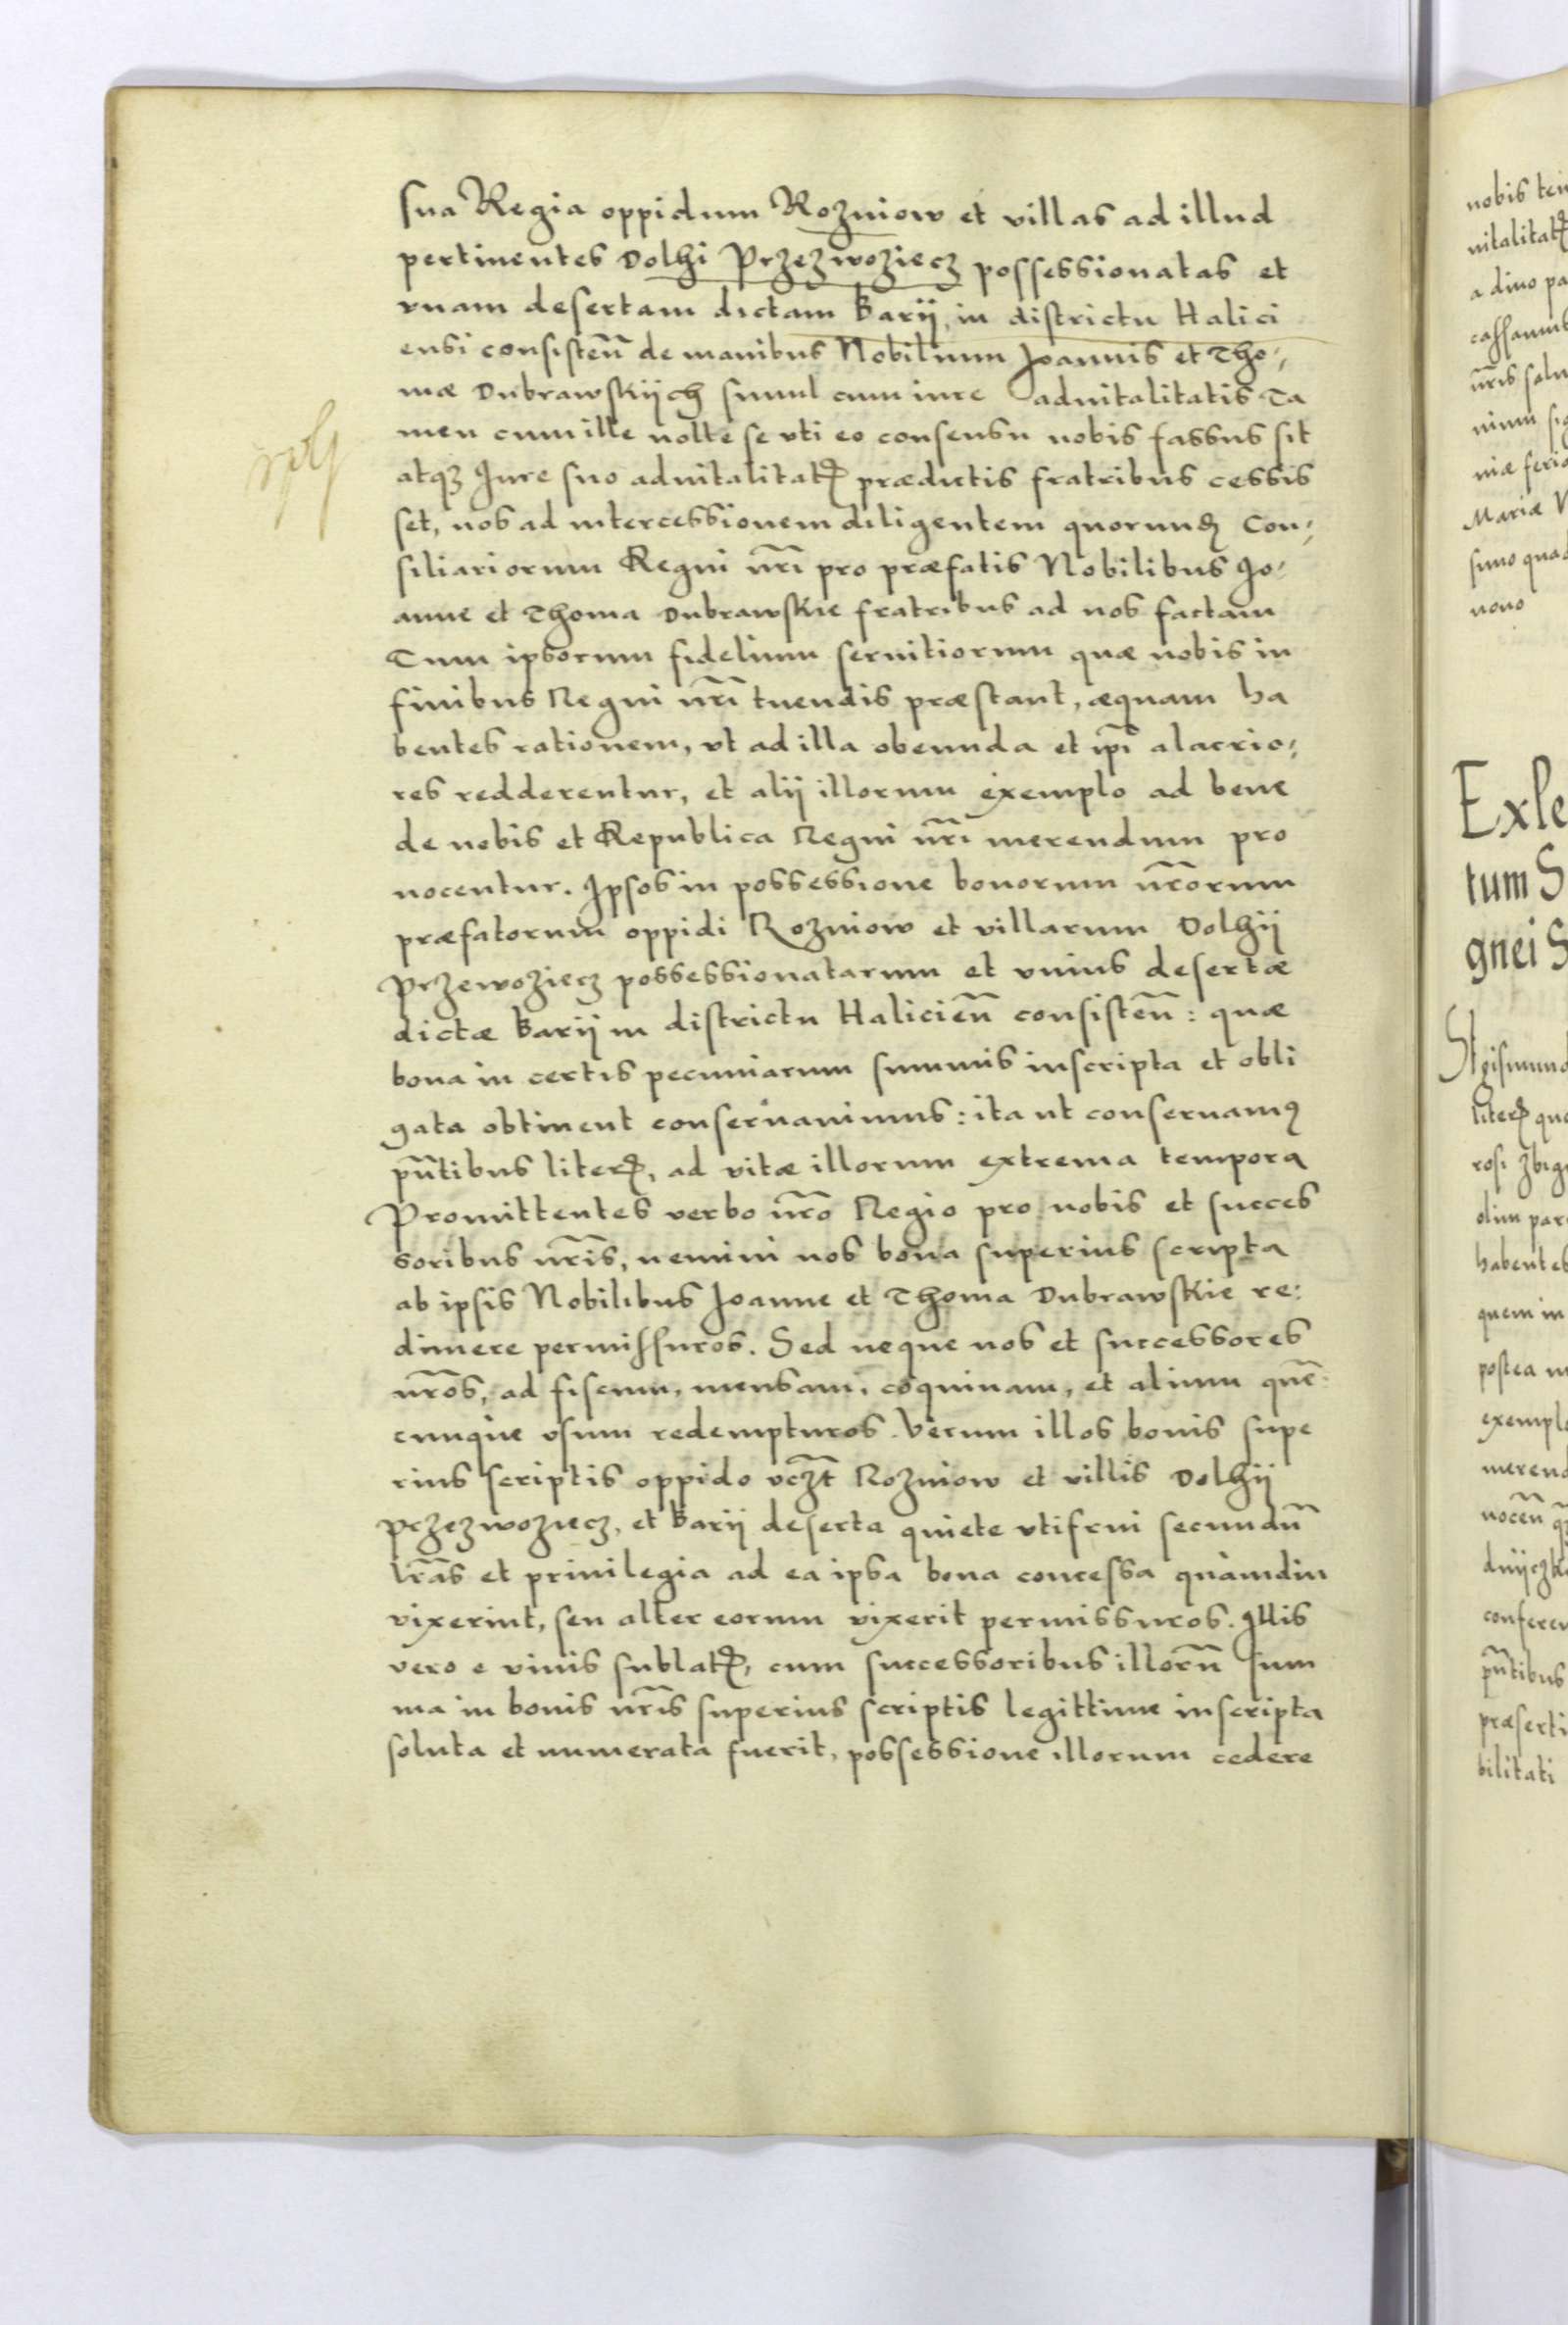 sua Regia oppidum Rozniow et villas ad illud
pertinentes Dolhi Przezwoziecz possessionatas et
vnam desertam dictam Karij, in districtu Halici
ensi consisteñ de manibus Nobilium Joannis et Tho-,
mæ Dubrawskijch simul cum iure aduitalitatis Ta
men cum ille nolle se vti eo consensu nobis fassus sit
atqȝ Jure suo aduitalitatꝭ prædictis fratribus cessis
set, nos ad intercessionem diligentem quorundꝭ Con-,
siliariorum Regni nr̃i pro præfatis Nobilibus Jo-,
anne et Thoma Dubrawskie fratribus ad nos factam
Tum ipsorum fidelium seruitiorum quæ nobis in
finibus Regni nr̃i tuendis præstant, æquam ha
bentes rationem, vt ad illa obeunda et ip̃i alacrio-,
res redderentur, et alij illorum exemplo ad bene
de nobis et Republica Regni nr̃i merendum pro
uocentur. Ipsos in possessione bonorum nr̃orum
præfatorum oppidi Rozniow et villarum Dolhij
Przewoziecz possessionatarum et vnius desertæ
dictæ Karij in districtu Halicieñ consisteñ: quæ
bona in certis pecuniarum summis inscripta et obli
gata obtinent conseruauimus: ita ut conseruamꝯ
pñtibus literꝭ, ad vitæ illorum extrema tempora
Promittentes verbo nr̃o Regio pro nobis et succes
soribus nr̃is, nemini nos bona superius scripta
ab ipsis Nobilibus Joanne et Thoma Dubrawskie re:
dimere permissuros. Sed neque nos et successores
nr̃os, ad fiscum, mensam, coquinam, et alium quẽ-
cunque vsum redempturos. Verum illos bonis supe
rius scriptis oppido vcz̃t Rozniow et villis Dolhij
Przezwoziecz, et Karij deserta quiete vtifrui secundũ
lr̃as et priuilegia ad ea ipsa bona concessa quàmdiu
vixerint, seu alter eorum vixerit permissuros. Illis
vero e viuis sublatꝭ, cum successoribus illorũ sum
ma in bonis nr̃is superius scriptis legittime inscripta
soluta et numerata fuerit, possessione illorum cedere
nobis
uitalitatꝭ
a diuo
cassamus
nr̃is
Mariæ
nono
Exle
tum S
gnei S
Sigismund
literꝭ
olim
habentes
quem in
postea
exemplo
pñtibus
præserti
bilitati